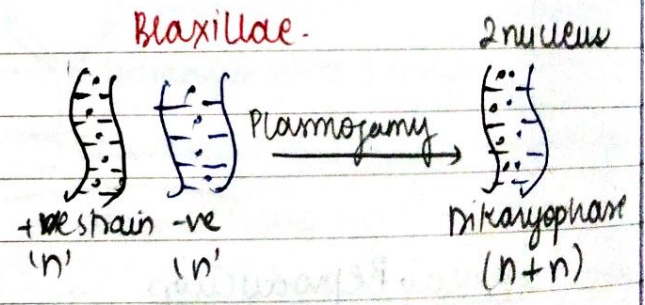 Blaxillae. 2 nucleus
Plasmogamy
+ve strain -ve Dikaryophase
'n' 'n' (n+n)